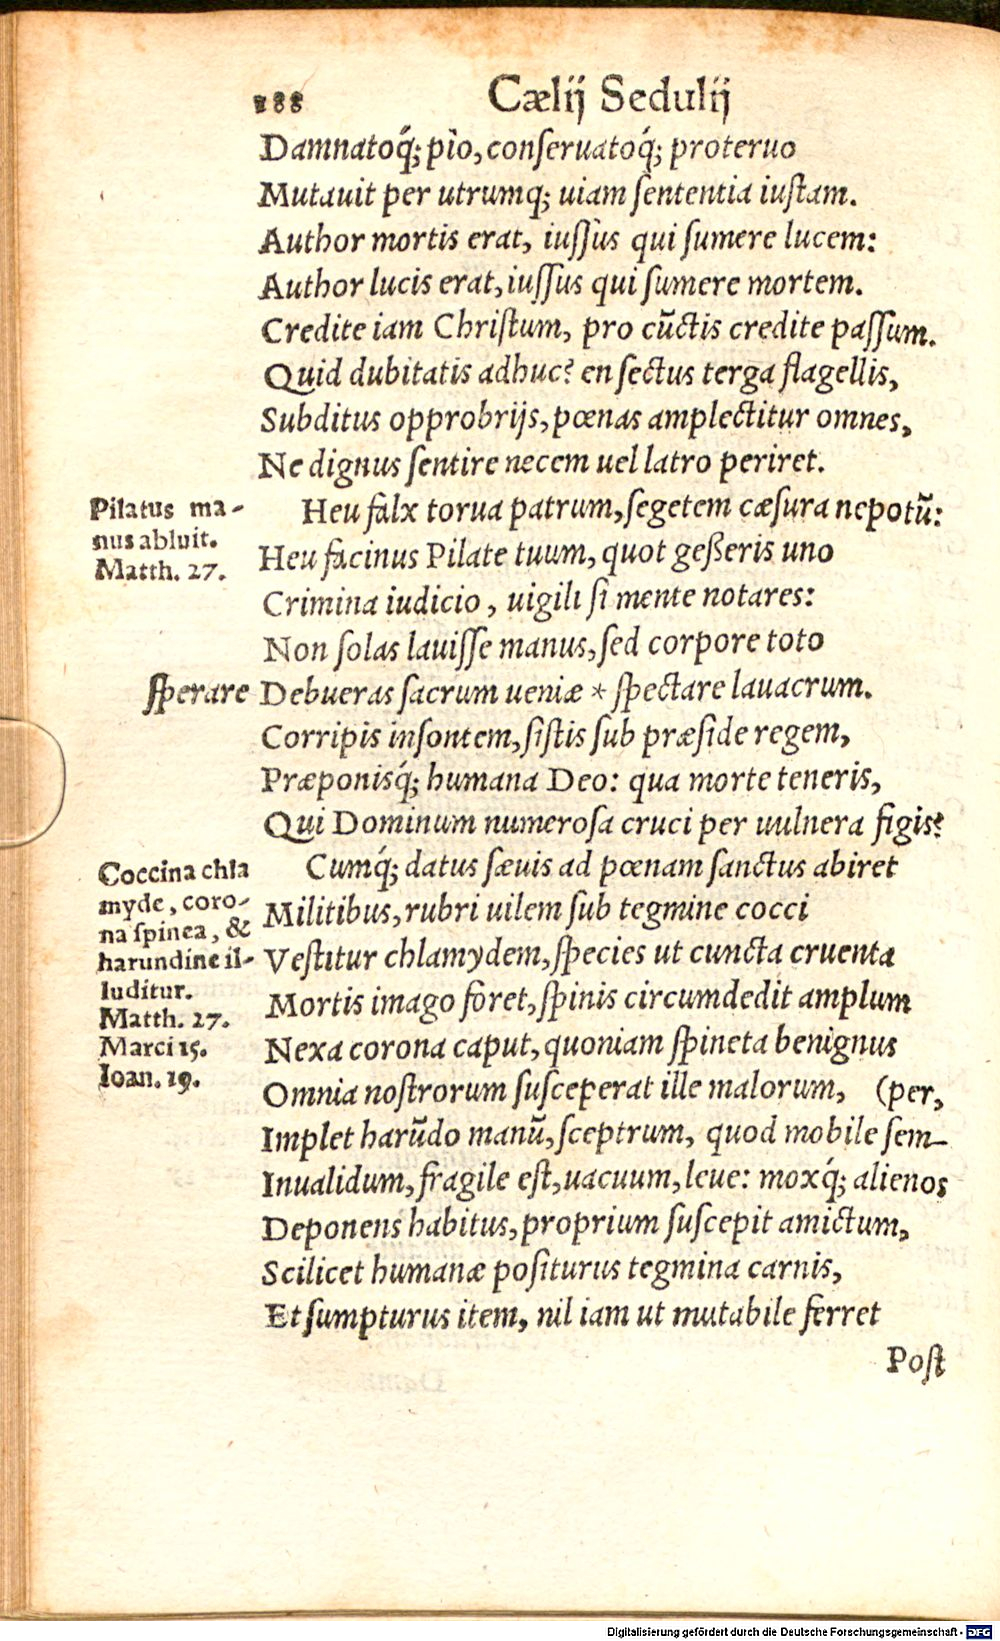 188 Cælij Sedulij
Damnatoq́; pio, conſeruatoq́; proteruo
Mutauit per utrumq; uiam ſententia iuſtam.
Author mortis erat, iuſſus qui ſumere lucem:
Author lucis erat, iuſſus qui ſumere mortem.
Credite iam Chriſtum, pro cūctis credite paſſum.
Quid dubitatis adhuc? en ſectus terga flagellis,
Subditus opprobrijs, pœnas amplectitur omnes,
Ne dignus ſentire necem uel latro periret.
Heu falx torua patrum, ſegetem cæſura nepotū:
Heu facinus Pilate tuum, quot geßeris uno
Crimina iudicio, uigili ſi mente notares:
Non ſolas lauiſſe manus, ſed corpore toto
Debueras ſacrum ueniæ * ſpectare lauacrum.
Corripis inſontem, ſiſtis ſub præſide regem,
Præponisq́; humana Deo: qua morte teneris,
Qui Dominum numeroſa cruci per uulnera figis?
Cumq́; datus ſæuis ad pœnam ſanctus abiret
Militibus, rubri uilem ſub tegmine cocci
Veſtitur chlamydem, ſpecies ut cuncta cruenta
Mortis imago foret, ſpinis circumdedit amplum
Nexa corona caput, quoniam ſpineta benignus
Omnia noſtrorum ſuſceperat ille malorum, (per,
Implet harūdo manū, ſceptrum, quod mobile ſem-
Inualidum, fragile eſt, uacuum, leue: moxq́; alienos
Deponens habitus, proprium ſuſcepit amictum,
Scilicet humanæ poſiturus tegmina carnis,
Et ſumpturus item, nil iam ut mutabile ferret
Poſt
Pilatus ma-
nus abluit.
Matth. 27.
ſperare
Coccina chla
myde, coro-
na ſpinea, &
harundine il-
luditur.
Matth. 27.
Marci 15.
Ioan. 19.
Digitalisierung gefördert durch die Deutsche Forschungsgemeinschaft - DFG